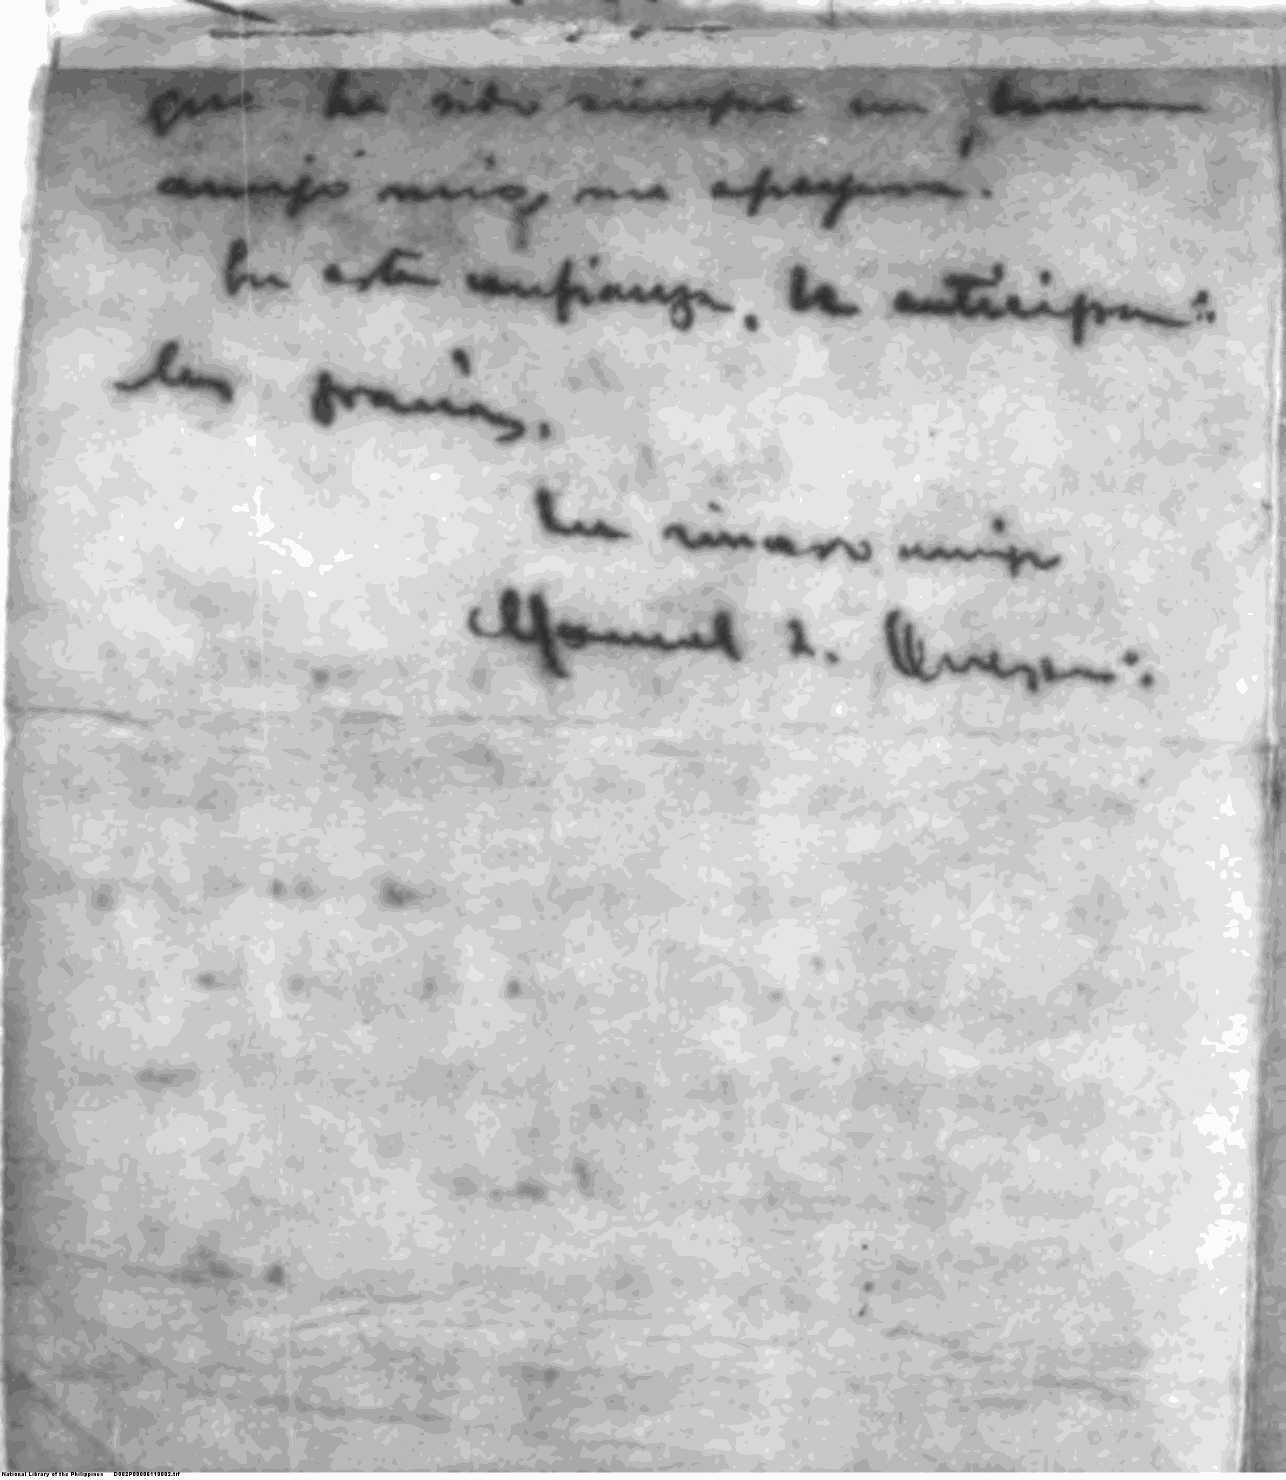 que ha sido siempre un buen
amigo mio, me apoyara.
En esta confianza, le anticipa
las gracias.
Su sincero amigo
Manuel L. Quezon.
National Library of the Philippines